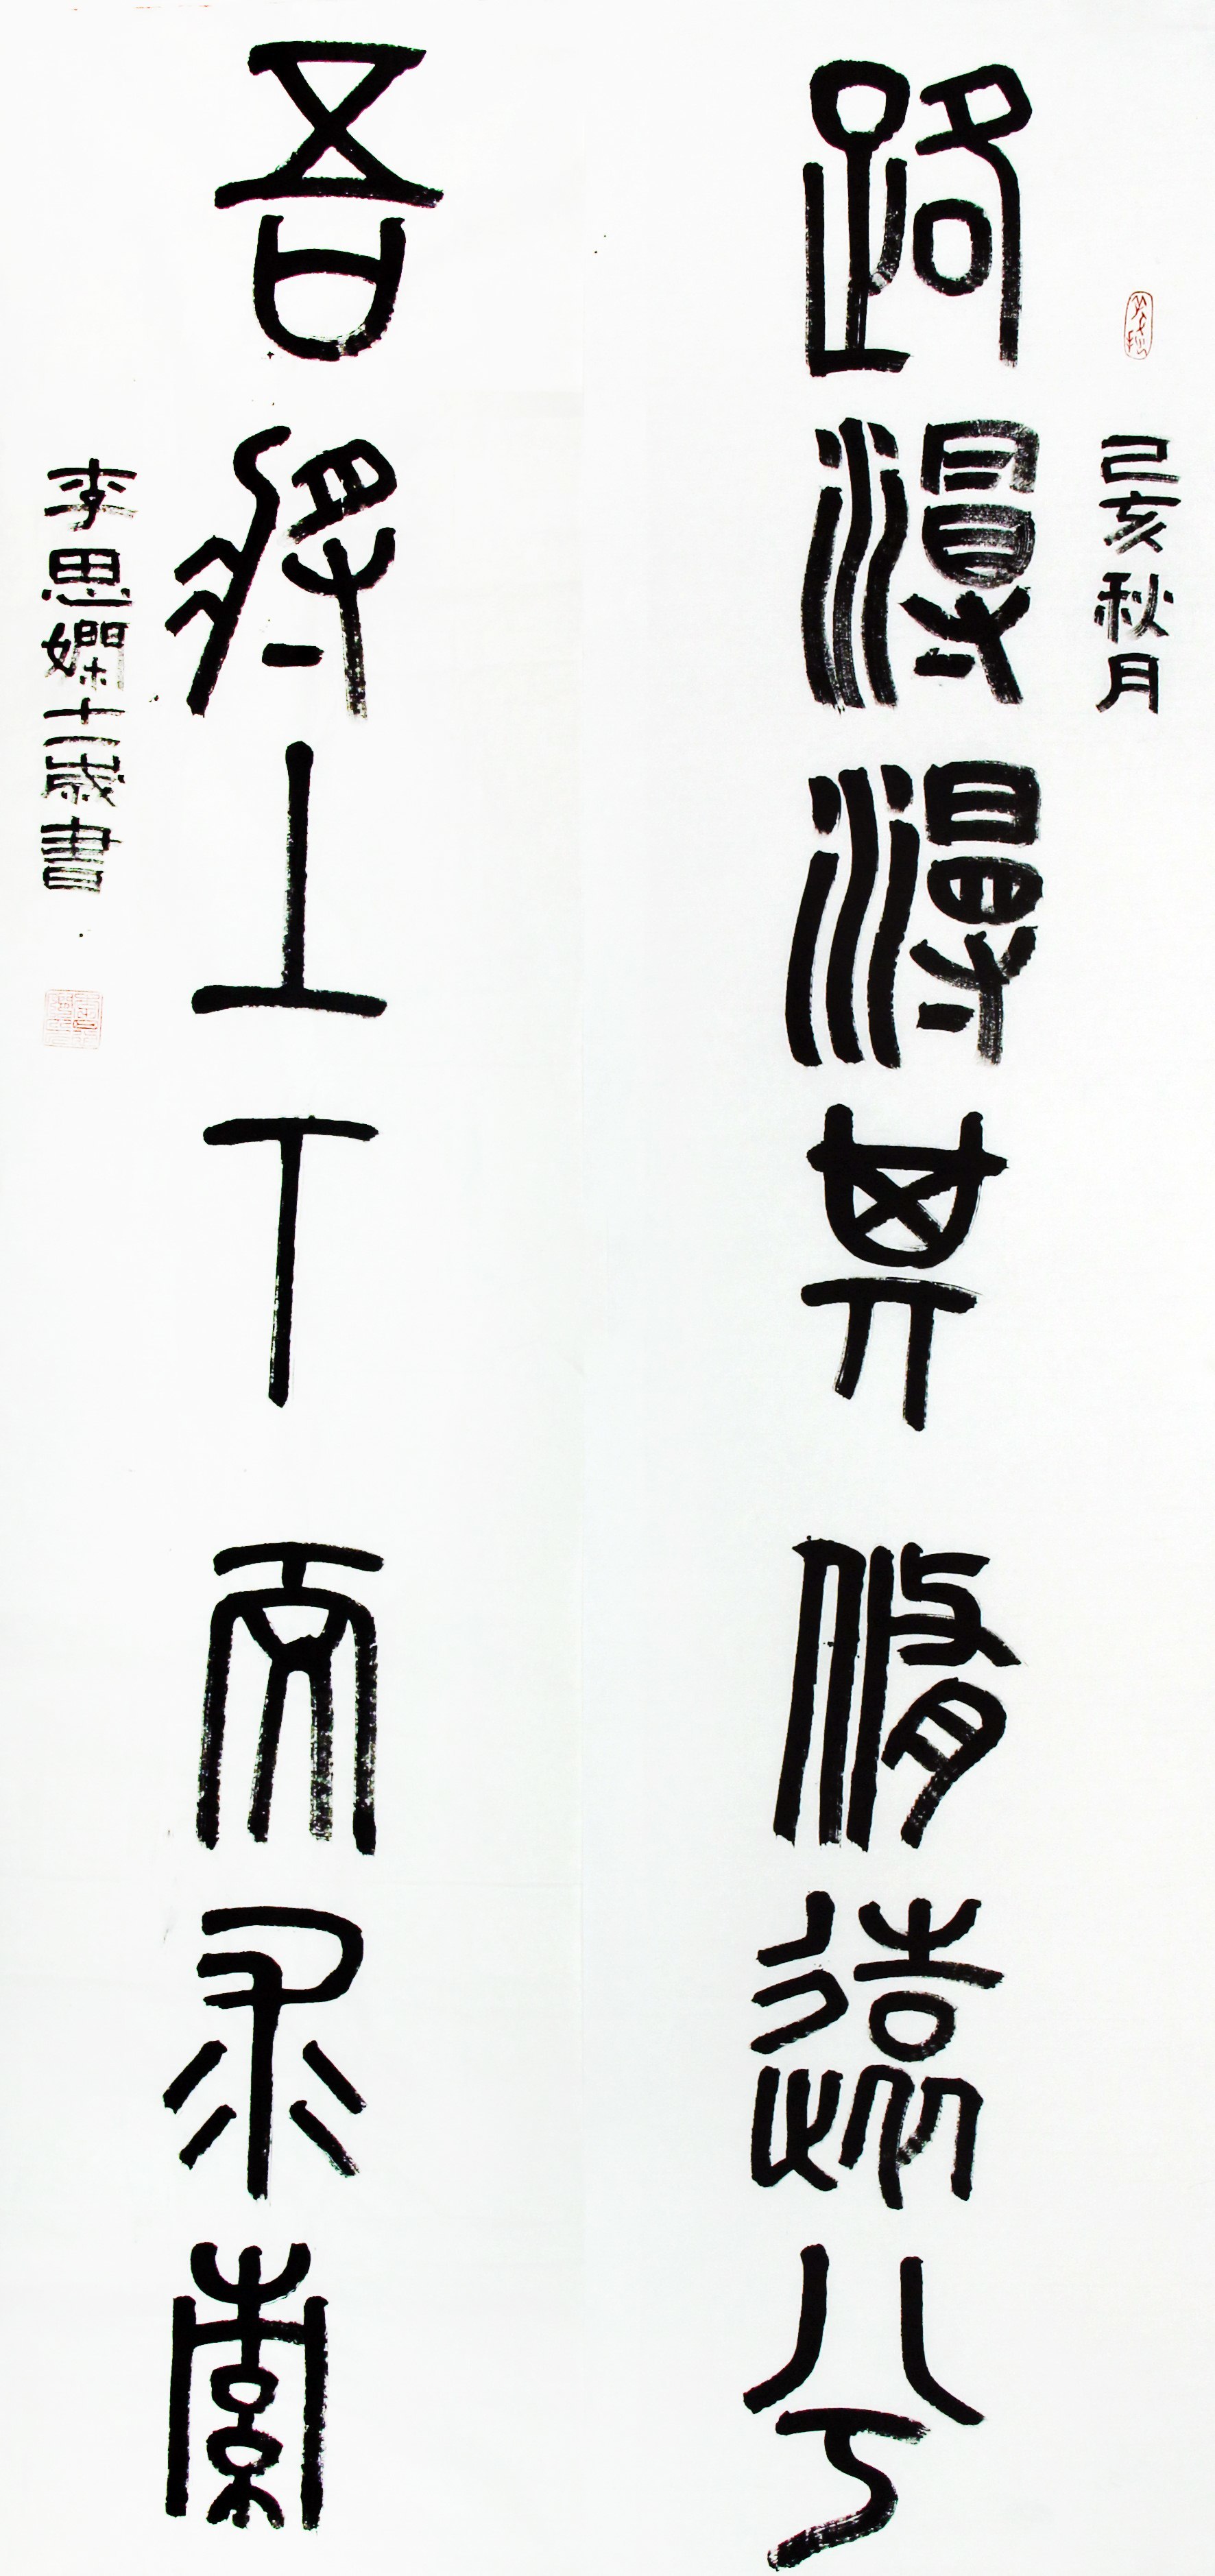 己亥秋月
路漫漫其脩遠兮
吾將上下而求索
李思嫻十二歲書